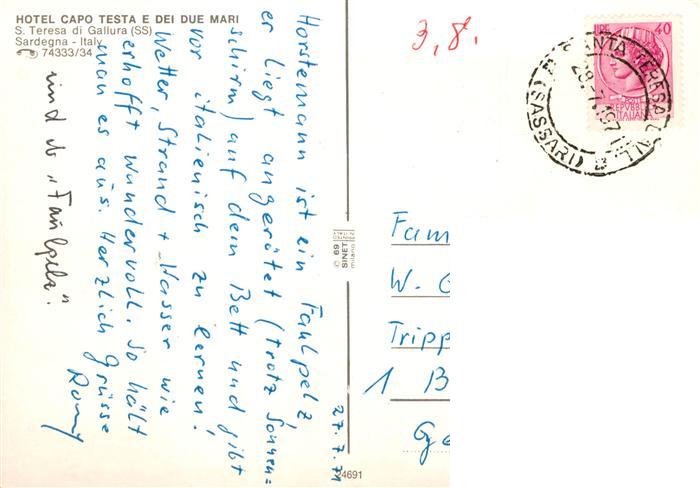 HOTEL CAPO TESTA E DEI DUE MARI
S. Teresa di Gallura (SS)
Sardegna - Italy
74333/34
27.7.71
Horstemann ist ein Faulpelz,
er liegt angerötet (trotz Sonnen=
schirm) auf dem Bett und gibt
vor italienisch zu lernen!
Wetter, Strand + Wasser wie
erhofft wundervoll. So hält
man es aus. Herzlich Grüsse
Romy
und d. "Faulpelz".
3,8.
LIRE 40
POSTE
REPUBBLICA
ITALIANA
SANTA TERESA GALL
28.7.197
(SASSARI)
Fam
W. G
Tripp
1 B
© 69
SINET
milano
24691